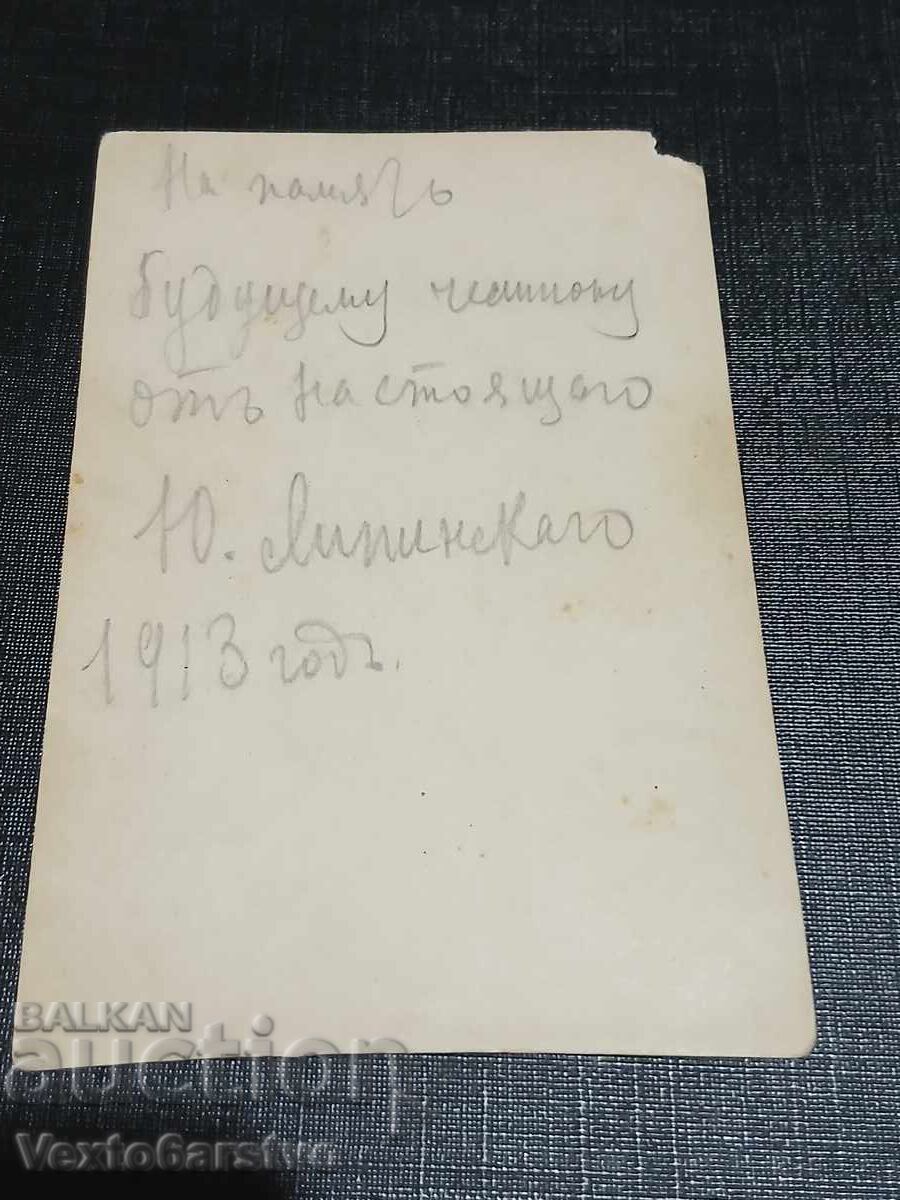 На память
Будущему чемпиону
отъ настоящаго
Ю. Липинскаго
1913 годъ.
BALKAN
auction
Vexto6arstvo